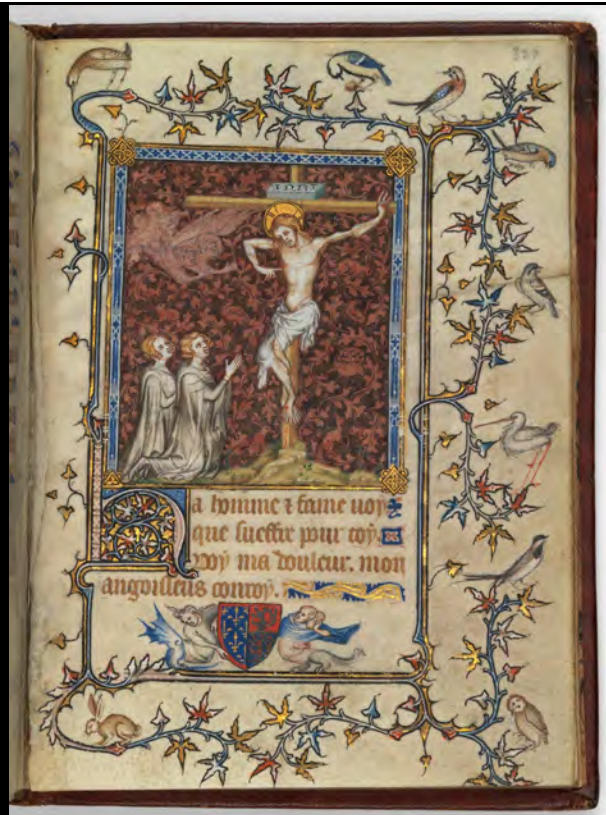 Ha homme ⁊ fame uoy
que sueffre pour toy.
voy ma douleur. mon
angoisseus conroy.